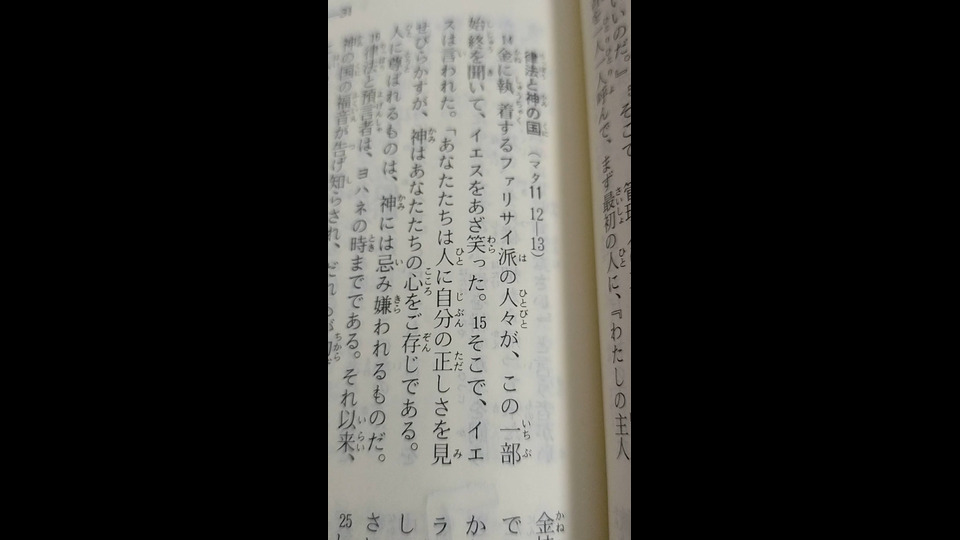 いいのだ。』5そこで 管理
を一人一人呼んで、まず最初の人に、『わたしの主人
律法と神の国 (マタ11 12―13)
14金に執着するファリサイ派の人々が、この一部
始終を聞いて、イエスをあざ笑った。15そこで、イエ
スは言われた。「あなたたちは人に自分の正しさを見
せびらかすが、神はあなたたちの心をご存じである。
人に尊ばれるものは、神には忌み嫌われるものだ。
16律法と預言者は、ヨハネの時までである。それ以来、
神の国の福音が告げ知らされ、
金
で
か
ラ
し
さ
25